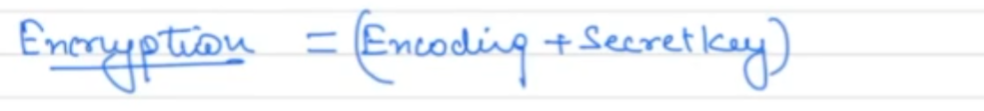 Encryption = (Encoding + Secret key)